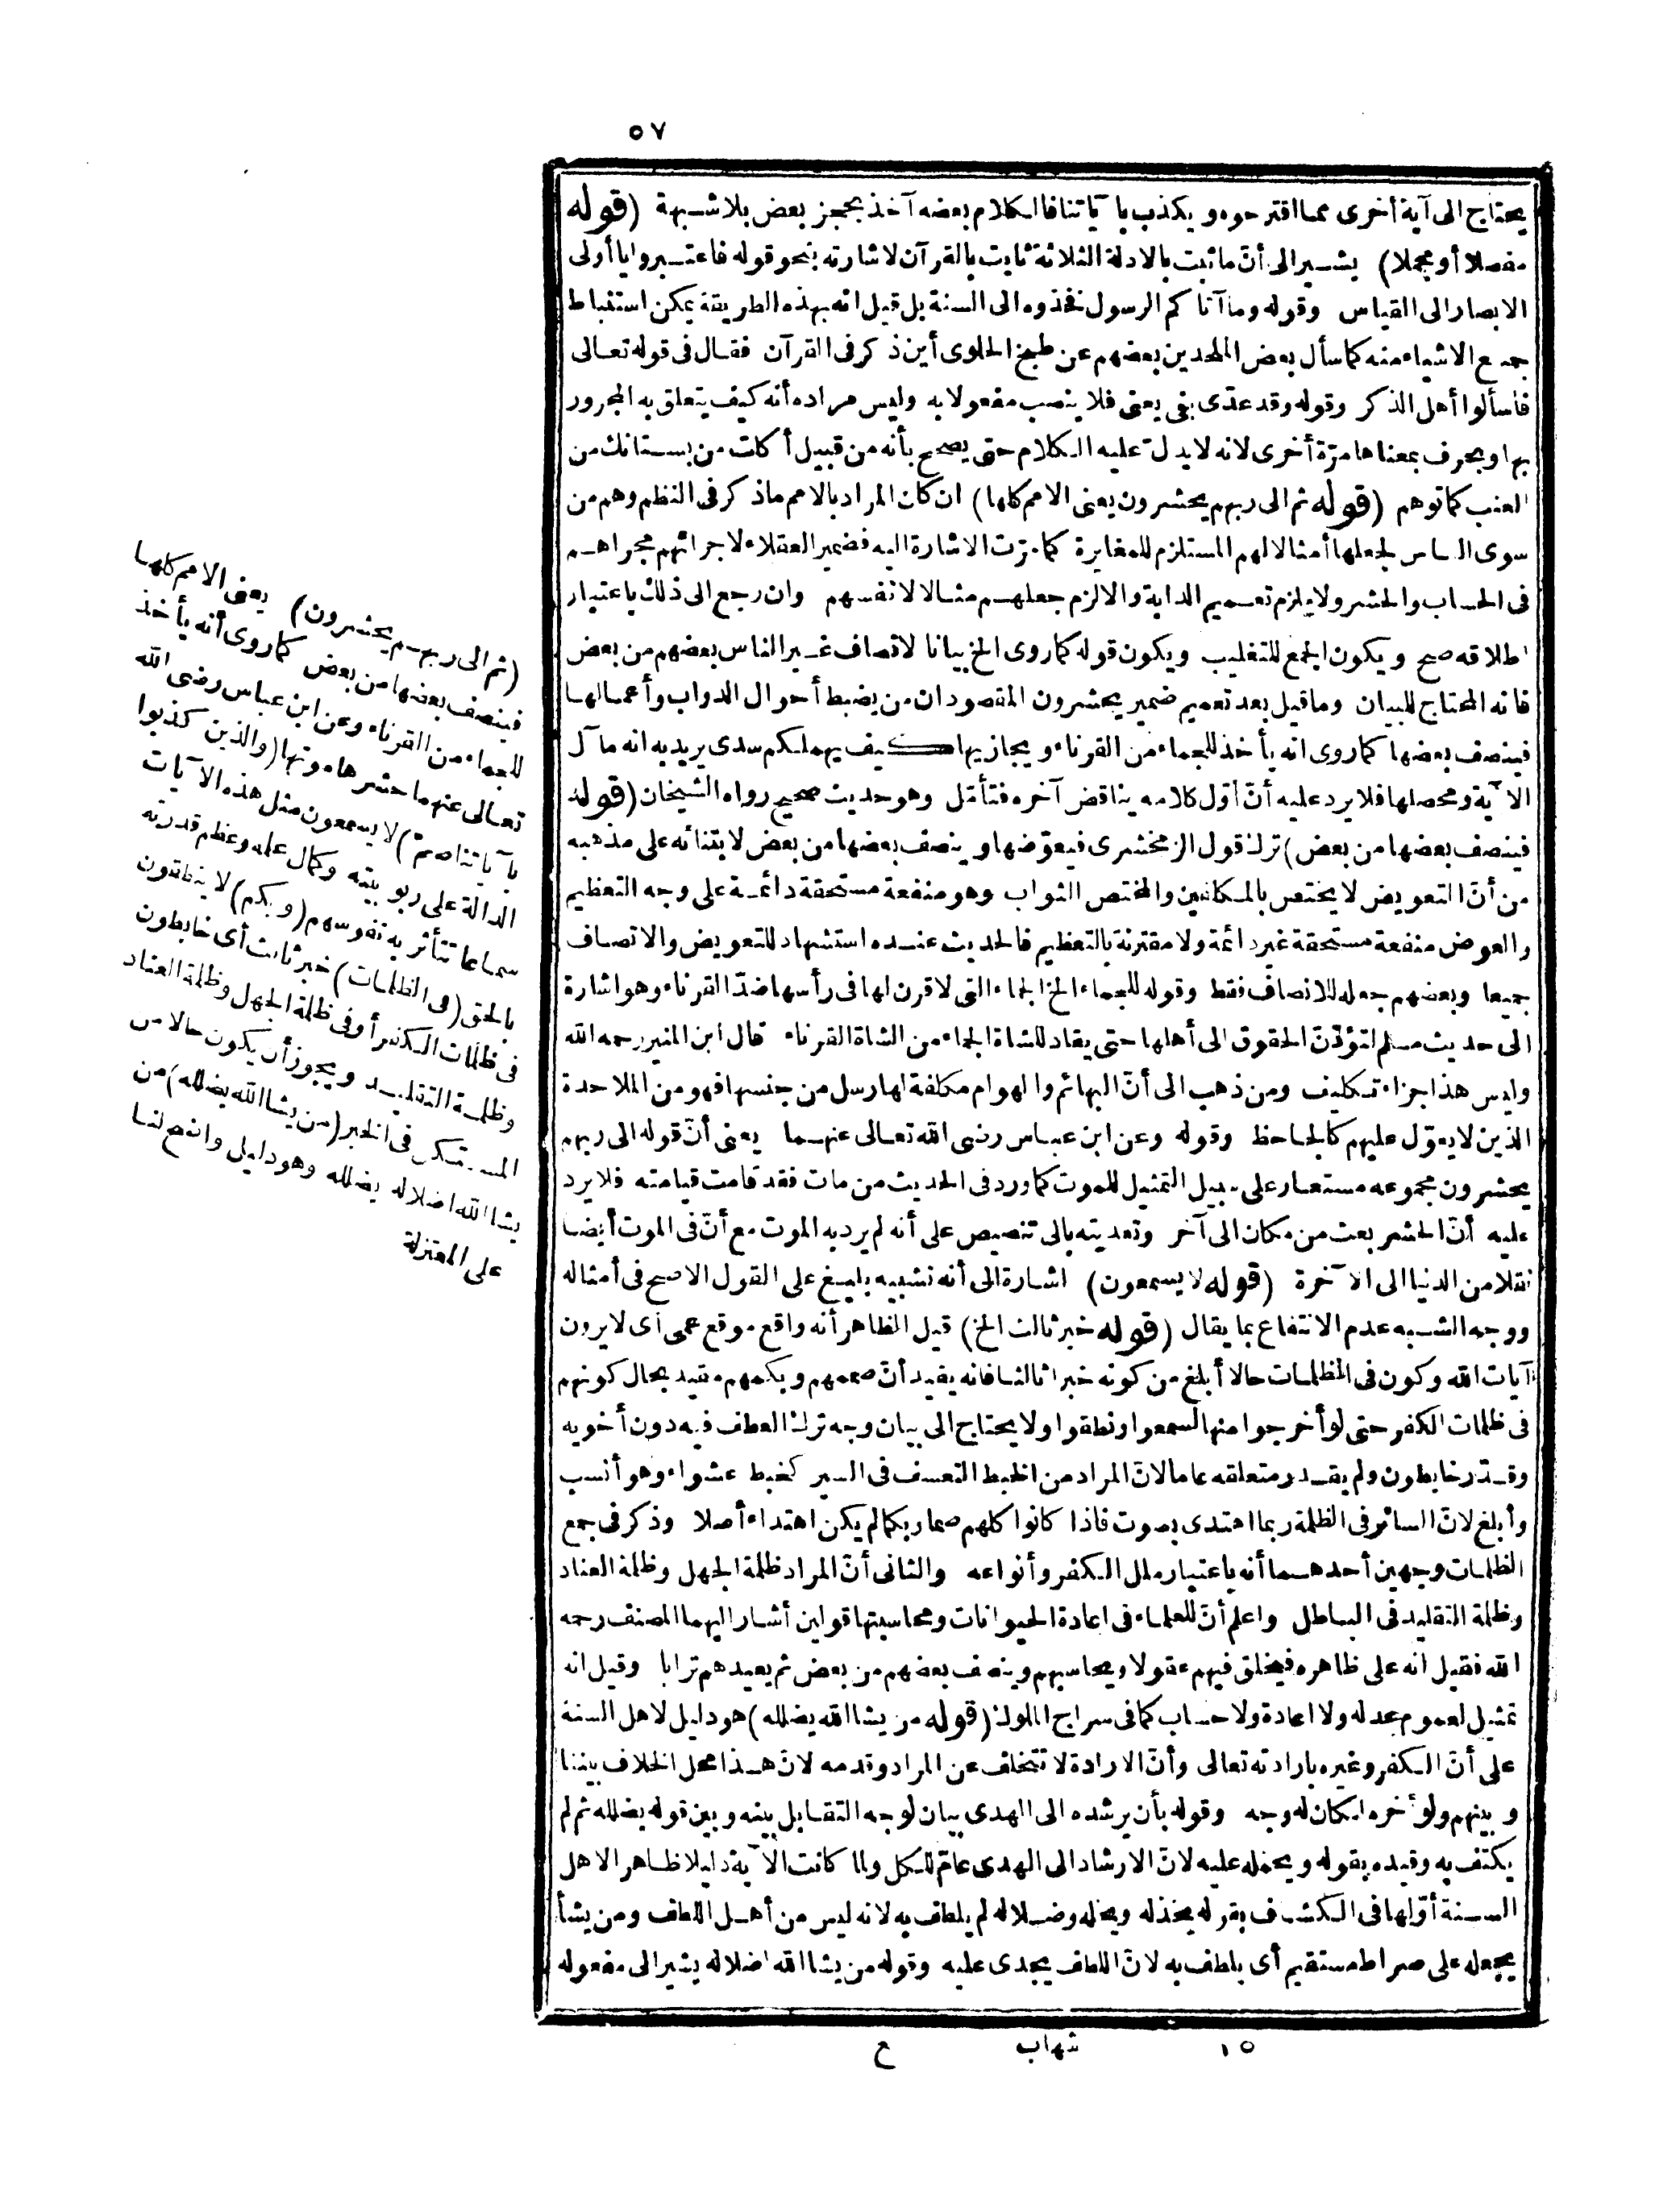 ٥٧
يحتاج الى آية أخرى مما اقترحوه ويكذب بآياتنا فالكلام بعضه آخذ بحجز بعض بلا شبهة (قوله
مفصلا أو مجملا) يشير الى أنّ ما ثبت بالادلة الثلاثة ثابت بالقرآن لاشارته بنحو قوله فاعتبروا يا أولى
الابصار الى القياس وقوله وما آتاكم الرسول فخذوه الى السنة بل قيل انه بهذه الطريقة يمكن استنباط
جميع الاشياء منه كما سأل بعض الملحدين بعضهم عن طبخ الحلوى أين ذكر فى القرآن فقال فى قوله تعالى
فاسألوا أهل الذكر وقوله وقد عدّى بفى يعنى فلا ينصب مفعولا به وليس مراده أنه كيف يتعلق به المجرور
بها وبحرف بمعناها مرّة أخرى لانه لا يدلّ عليه الكلام حتى يصحح بأنه من قبيل أكلت من بستانك من
العنب كما توهم (قوله ثم الى ربهم يحشرون يعنى الامم كلها) ان كان المراد بالامم ما ذكر فى النظم وهم من
سوى الناس لجعلها أمثالا لهم المستلزم للمغايرة كما مرّت الاشارة اليه فضمير العقلاء لاجرائهم مجراهم
فى الحساب والحشر ولا يلزم تعميم الدابة والا لزم جعلهم مثالا لانفسهم وان رجع الى ذلك باعتبار
اطلاقه صح ويكون الجمع للتغليب ويكون قوله كما روى الخ بيانا لانصاف غير الناس بعضهم من بعض
فانه المحتاج للبيان وما قيل بعد تعميم ضمير يحشرون المقصود ان من يضبط أحوال الدواب وأعمالها
فينصف بعضها كما روى انه يأخذ للجماء من القرناء ويجازيها كيف يهملكم سدى يريد به انه مآل
الآية ومحصلها فلا يرد عليه أنّ أوّل كلامه يناقض آخره فتأمّل وهو حديث صحيح رواه الشيخان (قوله
فينصف بعضها من بعض) ترك قول الزمخشرى فيعوّضها وينصف بعضها من بعض لابتنائه على مذهبه
من أنّ التعويض لا يختص بالمكلفين والمختص الثواب وهو منفعة مستحقة دائمة على وجه التعظيم
والعوض منفعة مستحقة غير دائمة ولا مقترنة بالتعظيم فالحديث عنده استشهاد للتعويض والانصاف
جميعا وبعضهم جعله للانصاف فقط وقوله للجماء الخ الجماء التى لا قرن لها فى رأسها ضدّ القرناء وهو اشارة
الى حديث مسلم لتؤدّنّ الحقوق الى أهلها حتى يقاد للشاة الجماء من الشاة القرناء قال ابن المنير رحمه الله
وليس هذا جزاء تكليف ومن ذهب الى أنّ البهائم والهوام مكلفة لها رسل من جنسها فهو من الملاحدة
الذين لا يعوّل عليهم كالجاحظ وقوله وعن ابن عباس رضى الله تعالى عنهما يعنى أنّ قوله الى ربهم
يحشرون مجموعه مستعار على سبيل التمثيل للموت كما ورد فى الحديث من مات فقد قامت قيامته فلا يرد
عليه أنّ الحشر بعث من مكان الى آخر وتعديته بالى تنصيص على أنه لم يرد به الموت مع أنّ فى الموت أيضا
نقلا من الدنيا الى الآخرة (قوله لا يسمعون) اشارة الى أنه تشبيه بليغ على القول الاصح فى أمثاله
ووجه الشبه عدم الانتفاع بما يقال (قوله خبر ثالث الخ) قيل الظاهر أنه واقع موقع عمى أى لا يرون
آيات الله وكون فى الظلمات حالا أبلغ من كونه خبرا ثالثا فانه يفيد أنّ صممهم وبكمهم مقيد بحال كونهم
فى ظلمات الكفر حتى لو أخرجوا منها لسمعوا ونطقوا ولا يحتاج الى بيان وجه ترك العطف فيه دون أخويه
وقدّر خابطون ولم يقدر متعلقه عاما لانّ المراد من الخبط التعسف فى السير كخبط عشواء وهو أنسب
وأبلغ لانّ السائر فى الظلمة ربما اهتدى بصوت فاذا كانوا كلهم صما وبكما لم يكن اهتداء أصلا وذكر فى جمع
الظلمات وجهين أحدهما أنه باعتبار ملل الكفر وأنواعه والثانى أنّ المراد ظلمة الجهل وظلمة العناد
وظلمة التقليد فى الباطل واعلم أنّ للعلماء فى اعادة الحيوانات ومحاسبتها قولين أشار اليهما المصنف رحمه
الله فقيل انه على ظاهره فيخلق فيهم عقولا ويحاسبهم وينصف بعضهم من بعض ثم يعيدهم ترابا وقيل انه
تمثيل لعموم عدله ولا اعادة ولا حساب كما فى سراج الملوك (قوله من يشا الله يضلله) هو دليل لاهل السنة
على أنّ الكفر وغيره بارادته تعالى وأنّ الارادة لا تتخلف عن المراد وقدمه لانّ هذا محل الخلاف بيننا
وبينهم ولو أخره لكان له وجه وقوله بأن يرشده الى الهدى بيان لوجه التقابل بينه وبين قوله يضلله ثم لم
يكتف به وقيده بقوله ويحمله عليه لانّ الارشاد الى الهدى عامّ للكل ولما كانت الآية دليلا ظاهرا لاهل
السنة أوّلها فى الكشاف بقوله يخذله ويخله وضلاله لم يلطف به لانه ليس من أهل اللطف ومن يشأ
يجعله على صراط مستقيم أى يلطف به لانّ اللطف يجدى عليه وقوله من يشا الله اضلاله يشير الى مفعوله
(ثم الى ربهم يحشرون) يعنى الامم كلها
فينصف بعضها من بعض كما روى أنه يأخذ
للجماء من القرناء وعن ابن عباس رضى الله
تعالى عنهما حشرها موتها (والذين كذبوا
بآياتنا صمّ) لا يسمعون مثل هذه الآيات
الدالة على ربوبيته وكمال علمه وعظم قدرته
سماعا تتأثر به نفوسهم (وبكم) لا ينطقون
بالحق (فى الظلمات) خبر ثالث أى خابطون
فى ظلمات الكفر أو فى ظلمة الجهل وظلمة العناد
وظلمة التقليد ويجوز أن يكون حالا من
المستكن فى الخبر (من يشا الله يضلله) من
يشا الله اضلاله يضلله وهو دليل واضح لنا
على المعتزلة
١٥ شهاب ع